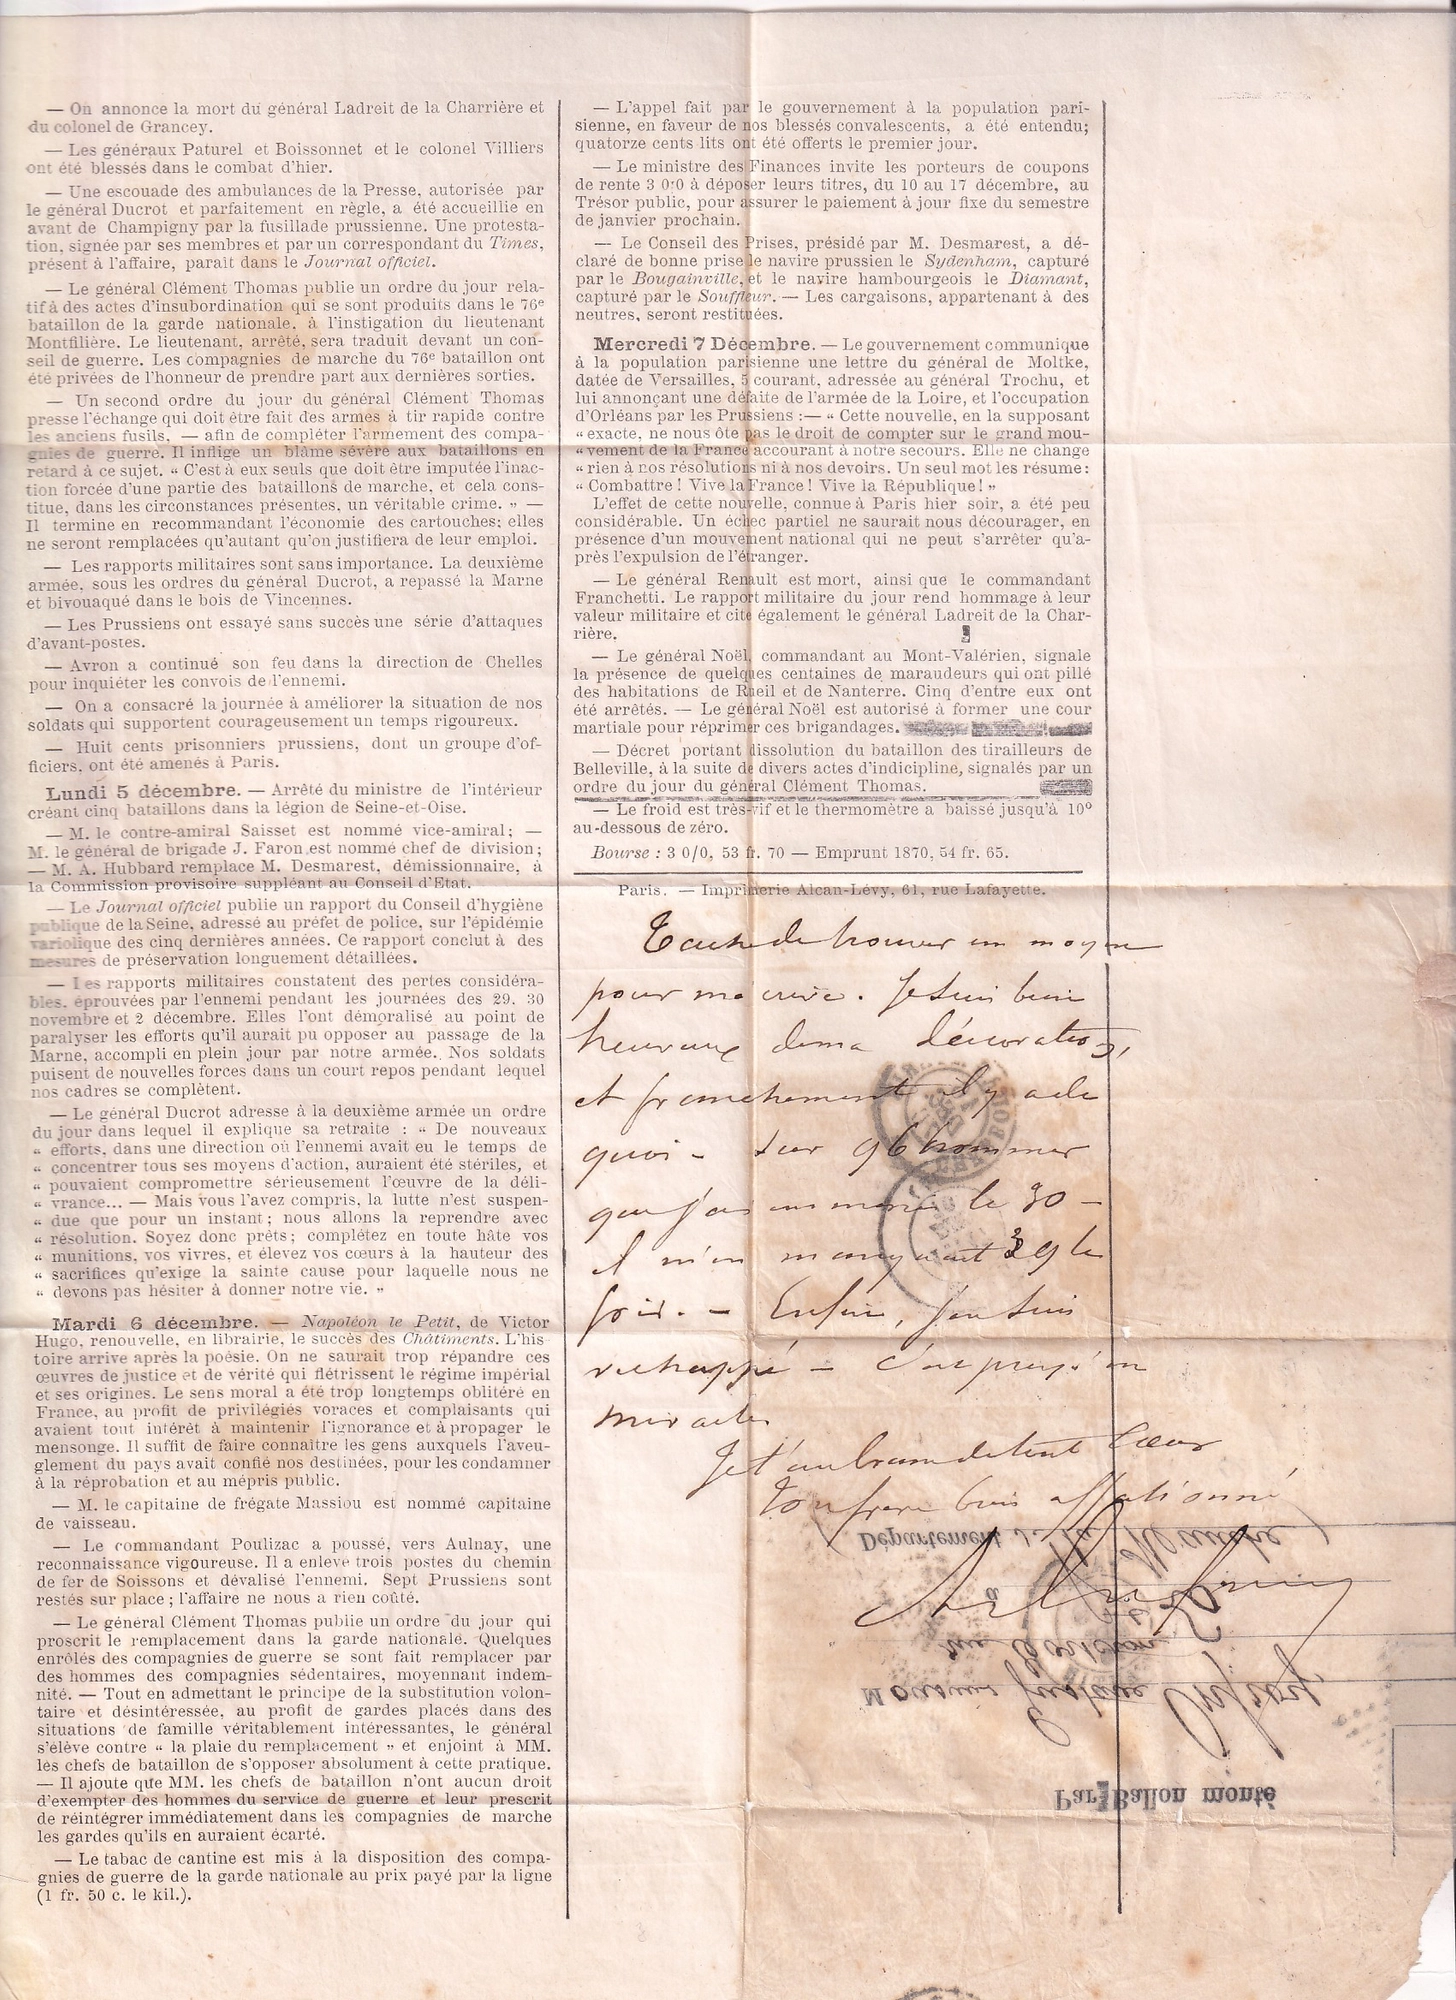 — On annonce la mort du général Ladreit de la Charrière et
du colonel de Grancey.
— Les généraux Paturel et Boissonnet et le colonel Villiers
ont été blessés dans le combat d'hier.
— Une escouade des ambulances de la Presse, autorisée par
le général Ducrot et parfaitement en règle, a été accueillie en
avant de Champigny par la fusillade prussienne. Une protesta-
tion, signée par ses membres et par un correspondant du Times,
présent à l'affaire, paraît dans le Journal officiel.
— Le général Clément Thomas publie un ordre du jour rela-
tif à des actes d'insubordination qui se sont produits dans le 76e
bataillon de la garde nationale, à l'instigation du lieutenant
Montfilière. Le lieutenant, arrêté, sera traduit devant un con-
seil de guerre. Les compagnies de marche du 76e bataillon ont
été privées de l'honneur de prendre part aux dernières sorties.
— Un second ordre du jour du général Clément Thomas
presse l'échange qui doit être fait des armes à tir rapide contre
les anciens fusils, — afin de compléter l'armement des compa-
gnies de guerre. Il inflige un blâme sévère aux bataillons en
retard à ce sujet. « C'est à eux seuls que doit être imputée l'inac-
tion forcée d'une partie des bataillons de marche, et cela cons-
titue, dans les circonstances présentes, un véritable crime. » —
Il termine en recommandant l'économie des cartouches; elles
ne seront remplacées qu'autant qu'on justifiera de leur emploi.
— Les rapports militaires sont sans importance. La deuxième
armée, sous les ordres du général Ducrot, a repassé la Marne
et bivouaqué dans le bois de Vincennes.
— Les Prussiens ont essayé sans succès une série d'attaques
d'avant-postes.
— Avron a continué son feu dans la direction de Chelles
pour inquiéter les convois de l'ennemi.
— On a consacré la journée à améliorer la situation de nos
soldats qui supportent courageusement un temps rigoureux.
— Huit cents prisonniers prussiens, dont un groupe d'of-
ficiers, ont été amenés à Paris.
Lundi 5 décembre. — Arrêté du ministre de l'intérieur
créant cinq bataillons dans la légion de Seine-et-Oise.
— M. le contre-amiral Saisset est nommé vice-amiral; —
M. le général de brigade J. Faron est nommé chef de division;
— M. A. Hubbard remplace M. Desmarest, démissionnaire, à
la Commission provisoire suppléant au Conseil d'Etat.
— Le Journal officiel publie un rapport du Conseil d'hygiène
publique de la Seine, adressé au préfet de police, sur l'épidémie
variolique des cinq dernières années. Ce rapport conclut à des
mesures de préservation longuement détaillées.
— Les rapports militaires constatent des pertes considéra-
bles, éprouvées par l'ennemi pendant les journées des 29, 30
novembre et 2 décembre. Elles l'ont démoralisé au point de
paralyser les efforts qu'il aurait pu opposer au passage de la
Marne, accompli en plein jour par notre armée. Nos soldats
puisent de nouvelles forces dans un court repos pendant lequel
nos cadres se complètent.
— Le général Ducrot adresse à la deuxième armée un ordre
du jour dans lequel il explique sa retraite : « De nouveaux
« efforts, dans une direction où l'ennemi avait eu le temps de
« concentrer tous ses moyens d'action, auraient été stériles, et
« pouvaient compromettre sérieusement l'œuvre de la déli-
« vrance... — Mais vous l'avez compris, la lutte n'est suspen-
« due que pour un instant; nous allons la reprendre avec
« résolution. Soyez donc prêts; complétez en toute hâte vos
« munitions, vos vivres, et élevez vos cœurs à la hauteur des
« sacrifices qu'exige la sainte cause pour laquelle nous ne
« devons pas hésiter à donner notre vie. »
Mardi 6 décembre. — Napoléon le Petit, de Victor
Hugo, renouvelle, en librairie, le succès des Châtiments. L'his
toire arrive après la poésie. On ne saurait trop répandre ces
œuvres de justice et de vérité qui flétrissent le régime impérial
et ses origines. Le sens moral a été trop longtemps oblitéré en
France, au profit de privilégiés voraces et complaisants qui
avaient tout intérêt à maintenir l'ignorance et à propager le
mensonge. Il suffit de faire connaître les gens auxquels l'aveu-
glement du pays avait confié nos destinées, pour les condamner
à la réprobation et au mépris public.
— M. le capitaine de frégate Massiou est nommé capitaine
de vaisseau.
— Le commandant Poulizac a poussé, vers Aulnay, une
reconnaissance vigoureuse. Il a enlevé trois postes du chemin
de fer de Soissons et dévalisé l'ennemi. Sept Prussiens sont
restés sur place; l'affaire ne nous a rien coûté.
— Le général Clément Thomas publie un ordre du jour qui
proscrit le remplacement dans la garde nationale. Quelques
enrôlés des compagnies de guerre se sont fait remplacer par
des hommes des compagnies sédentaires, moyennant indem-
nité. — Tout en admettant le principe de la substitution volon-
taire et désintéressée, au profit de gardes placés dans des
situations de famille véritablement intéressantes, le général
s'élève contre « la plaie du remplacement » et enjoint à MM.
les chefs de bataillon de s'opposer absolument à cette pratique.
— Il ajoute que MM. les chefs de bataillon n'ont aucun droit
d'exempter des hommes du service de guerre et leur prescrit
de réintégrer immédiatement dans les compagnies de marche
les gardes qu'ils en auraient écarté.
— Le tabac de cantine est mis à la disposition des compa-
gnies de guerre de la garde nationale au prix payé par la ligne
(1 fr. 50 c. le kil.).
— L'appel fait par le gouvernement à la population pari-
sienne, en faveur de nos blessés convalescents, a été entendu;
quatorze cents lits ont été offerts le premier jour.
— Le ministre des Finances invite les porteurs de coupons
de rente 3 0/0 à déposer leurs titres, du 10 au 17 décembre, au
Trésor public, pour assurer le paiement à jour fixe du semestre
de janvier prochain.
— Le Conseil des Prises, présidé par M. Desmarest, a dé-
claré de bonne prise le navire prussien le Sydenham, capturé
par le Bougainville, et le navire hambourgeois le Diamant,
capturé par le Souffleur. — Les cargaisons, appartenant à des
neutres, seront restituées.
Mercredi 7 Décembre. — Le gouvernement communique
à la population parisienne une lettre du général de Moltke,
datée de Versailles, 5 courant, adressée au général Trochu, et
lui annonçant une défaite de l'armée de la Loire, et l'occupation
d'Orléans par les Prussiens :— « Cette nouvelle, en la supposant
« exacte, ne nous ôte pas le droit de compter sur le grand mou-
« vement de la France accourant à notre secours. Elle ne change
« rien à nos résolutions ni à nos devoirs. Un seul mot les résume:
« Combattre ! Vive la France ! Vive la République ! »
L'effet de cette nouvelle, connue à Paris hier soir, a été peu
considérable. Un échec partiel ne saurait nous décourager, en
présence d'un mouvement national qui ne peut s'arrêter qu'a-
près l'expulsion de l'étranger.
— Le général Renault est mort, ainsi que le commandant
Franchetti. Le rapport militaire du jour rend hommage à leur
valeur militaire et cite également le général Ladreit de la Char-
rière.
— Le général Noël, commandant au Mont-Valérien, signale
la présence de quelques centaines de maraudeurs qui ont pillé
des habitations de Rueil et de Nanterre. Cinq d'entre eux ont
été arrêtés. — Le général Noël est autorisé à former une cour
martiale pour réprimer ces brigandages.
— Décret portant dissolution du bataillon des tirailleurs de
Belleville, à la suite de divers actes d'indicipline, signalés par un
ordre du jour du général Clément Thomas.
— Le froid est très-vif et le thermomètre a baissé jusqu'à 10°
au-dessous de zéro.
Bourse : 3 0/0, 53 fr. 70 — Emprunt 1870, 54 fr. 65.
Paris. — Imprimerie Alcan-Lévy, 61, rue Lafayette.
Tache de trouver un moyen
pour m'écrire. Je suis bien
heureux de ma décoration,
et franchement il y a de
quoi — sur 96 hommes
que j'ai emmenés le 30 —
il m'en manquait 39 le
soir. — Enfin, j'en suis
réchappé — c'est presqu'un
miracle.
Je t'embrasse de tout cœur
Ton frère bien affectionné
Département de la Manche
à
rue
Monsieur Gustave
Par Ballon monté